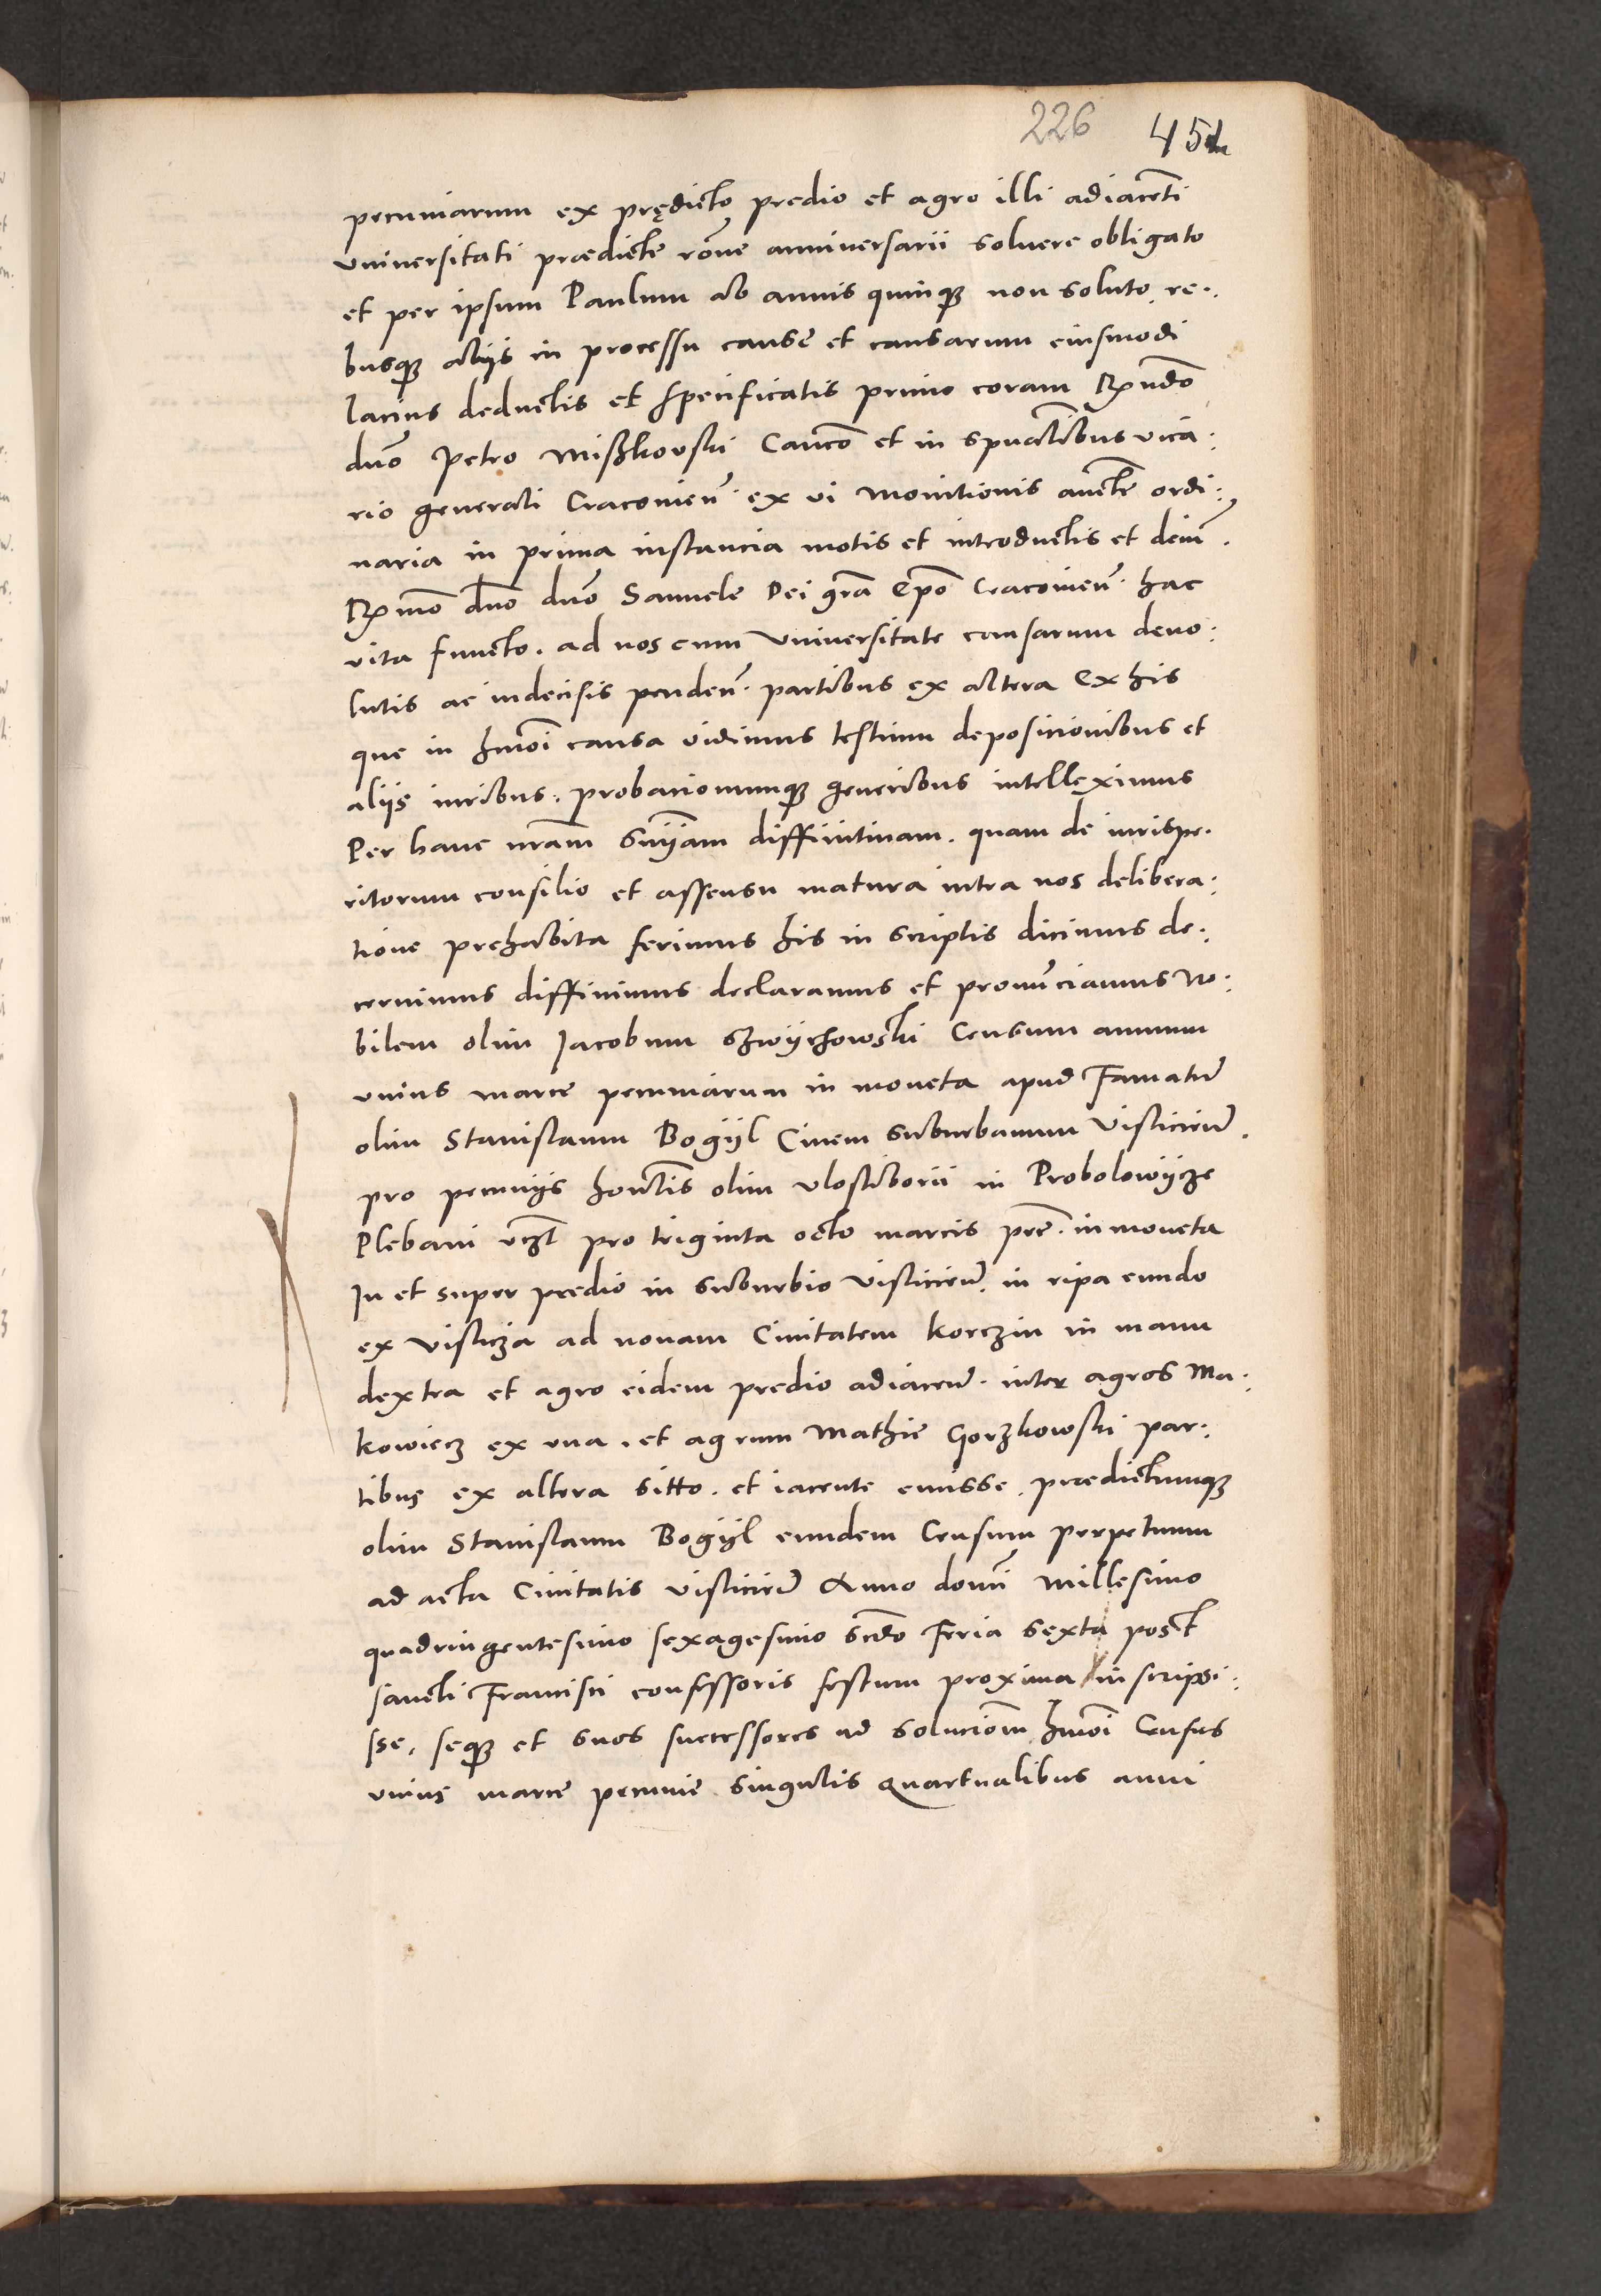 226 451
pecuniarum ex prędicto predio et agro illi adiacenti
universitati prædicte rõne anniversarii solvere obligato
et per ipsum Paulum ab annis quinq; non soluto, re:
busq; aliis in processu cause et causarum eiusmodi
lacius deductis et specificatis primo coram Rñdo
dño Petro Miszkovski Canco et in spualibus vica:
rio generali Cracovien̄. ex vi monitionis aucte ordi:
naria in prima instancia motis et introductis et dein̄.
Rmo dño dño Samuele Dei gra Epo Cracovien̄. hac
vita functo. ad nos cum Universitate causarum devo:
lutis ac indecisis penden̄. partibus ex altera Ex his
que in hmoi causa vidimus testium deposicionibus et
aliis iuribus. probacionumq; generibus intelleximus
Per hanc nram sniam diffinitivam. quam de iurispe:
ritorum consilio et assensu matura intra nos delibera:
tione prehabita ferimus his in scriptis dicimus de:
cernimus diffinimus declaramus et pronunciamus No:
bilem olim Jacobum Szwychowski Censum annuum
unius marce pecuniarum in moneta apud Famatū
olim Stanislaum Bogyl Civem suburbanum Visliciē.
pro pecuniis honestis olim Vlostiborii in Probolowycze
Plebani vczt pro triginta octo marcis pre. in moneta
In et super predio in suburbio Visliciē. in ripa eundo
ex Vislicza ad novam Civitatem Korczin in manu
dextra et agro eidem predio adiacen̄. inter agros Ma:
kowiecz ex una. et agrum Mathie Gorzkowski par:
tibus ex altera sitto. et iacente emisse. prædictumq;
olim Stanislaum Bogyl eundem Censum perpetuum
ad acta Civitatis Visliciē Anno domi Millesimo
quadringentesimo sexagesimo scdo Feria sexta post
sancti Francisci confessoris festum proxima inscripsi:
sse, seq; et suos successores ad solucionem hmoi Census
unius marce pecunie singulis quartualibus anni